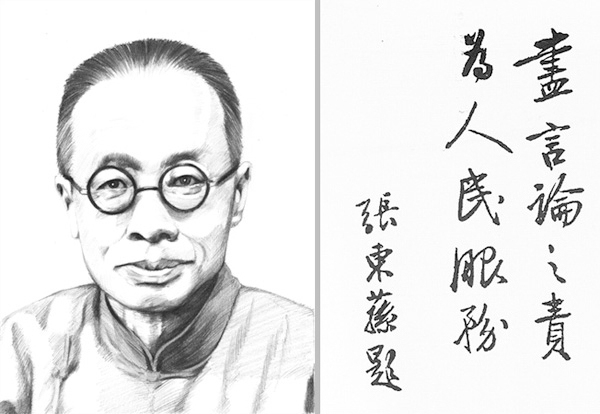 盡言論之責
為人民服務
張東蓀題